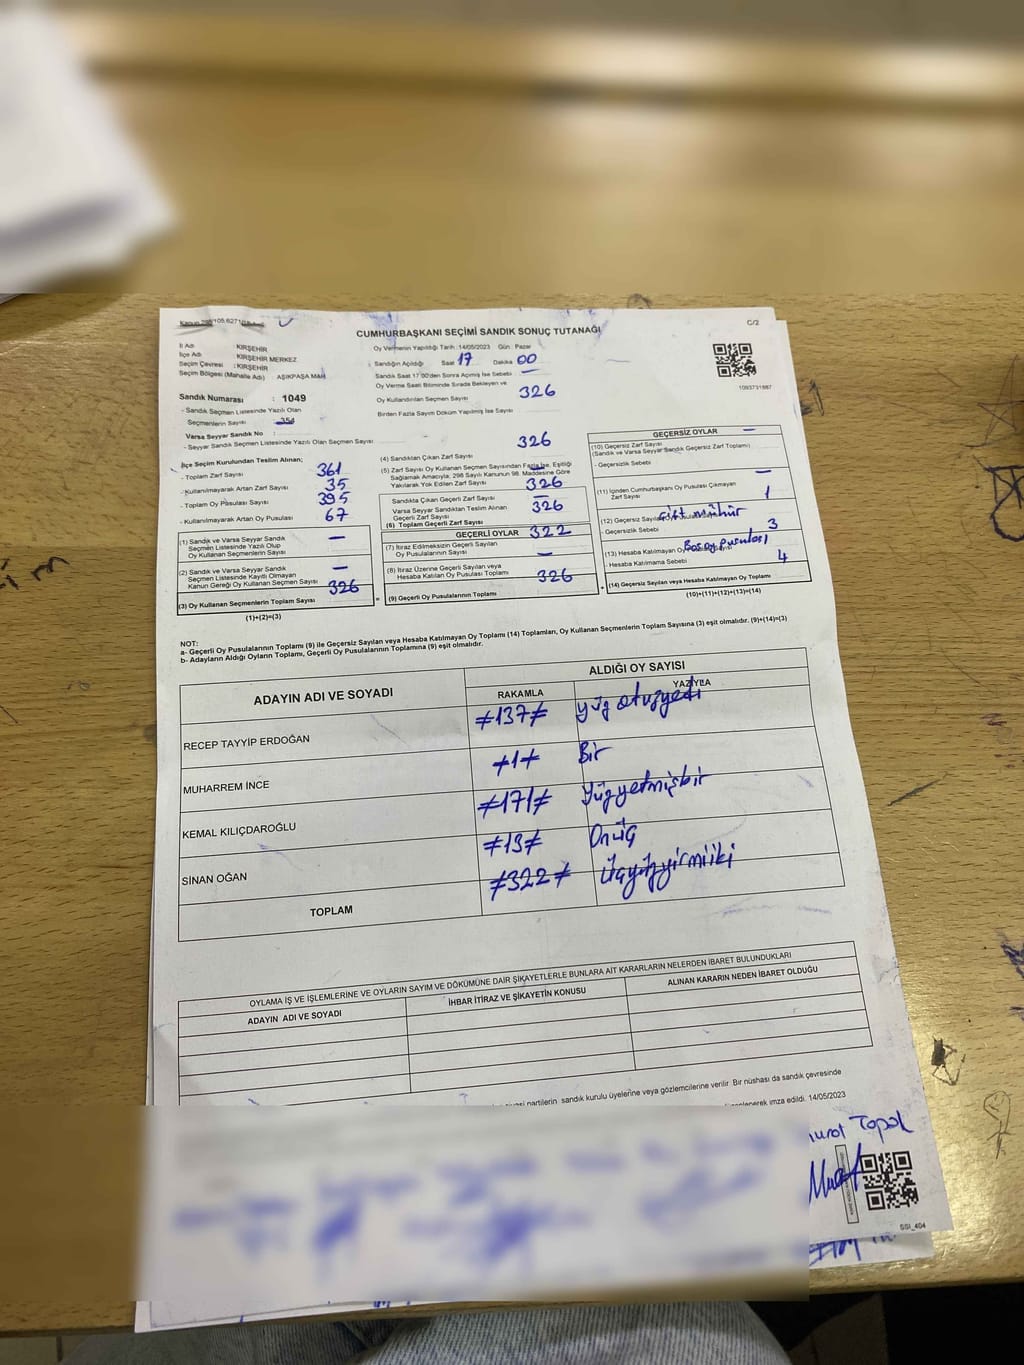 C/2
CUMHURBAŞKANI SEÇİMİ SANDIK SONUÇ TUTANAĞI
İl Adı : KIRŞEHİR
İlçe Adı : KIRŞEHİR MERKEZ
Seçim Çevresi : KIRŞEHİR
Seçim Bölgesi (Mahalle Adı) : AŞIKPAŞA MAH
Oy Vermenin Yapıldığı Tarih :14/05/2023 Gün : Pazar
Sandığın Açıldığı Saat 17 Dakika 00
Sandık Saat 17:00'den Sonra Açılmış İse Sebebi : —
Oy Verme Saati Bitiminde Sırada Bekleyen ve
Oy Kullandırılan Seçmen Sayısı 326
Birden Fazla Sayım Döküm Yapılmış İse Sayısı
1093731887
Sandık Numarası : 1049
- Sandık Seçmen Listesinde Yazılı Olan
Seçmenlerin Sayısı : 354
Varsa Seyyar Sandık No :
- Seyyar Sandık Seçmen Listesinde Yazılı Olan Seçmen Sayısı
İlçe Seçim Kurulundan Teslim Alınan;
- Toplam Zarf Sayısı 361
- Kullanılmayarak Artan Zarf Sayısı 35
- Toplam Oy Pusulası Sayısı 395
- Kullanılmayarak Artan Oy Pusulası 67
(1) Sandık ve Varsa Seyyar Sandık
Seçmen Listesinde Yazılı Olup
Oy Kullanan Seçmenlerin Sayısı —
(2) Sandık ve Varsa Seyyar Sandık
Seçmen Listesinde Kayıtlı Olmayan
Kanun Gereği Oy Kullanan Seçmen Sayısı —
(3) Oy Kullanan Seçmenlerin Toplam Sayısı 326
(1)+(2)=(3)
(4) Sandıktan Çıkan Zarf Sayısı 326
(5) Zarf Sayısı Oy Kullanan Seçmen Sayısından Fazla İse, Eşitliği
Sağlamak Amacıyla, 298 Sayılı Kanunun 98. Maddesine Göre
Yakılarak Yok Edilen Zarf Sayısı —
Sandıkta Çıkan Geçerli Zarf Sayısı 326
Varsa Seyyar Sandıktan Teslim Alınan
Geçerli Zarf Sayısı —
(6) Toplam Geçerli Zarf Sayısı 326
GEÇERLİ OYLAR
(7) İtiraz Edilmeksizin Geçerli Sayılan
Oy Pusulalarının Sayısı 322
(8) İtiraz Üzerine Geçerli Sayılan veya
Hesaba Katılan Oy Pusulası Toplamı —
(9) Geçerli Oy Pusulalarının Toplamı 326
GEÇERSİZ OYLAR
(10) Geçersiz Zarf Sayısı —
(Sandık ve Varsa Seyyar Sandık Geçersiz Zarf Toplamı)
- Geçersizlik Sebebi
(11) İçinden Cumhurbaşkanı Oy Pusulası Çıkmayan
Zarf Sayısı —
(12) Geçersiz Sayılan Oy Pusulası Sayısı 1
- Geçersizlik Sebebi çift mühür
(13) Hesaba Katılmayan Oy Pusulası Sayısı 3
- Hesaba Katılmama Sebebi Boş oy pusulası
+ (14) Geçersiz Sayılan veya Hesaba Katılmayan Oy Toplamı 4
(10)+(11)+(12)+(13)=(14)
NOT:
a- Geçerli Oy Pusulalarının Toplamı (9) ile Geçersiz Sayılan veya Hesaba Katılmayan Oy Toplamı (14) Toplamları, Oy Kullanan Seçmenlerin Toplam Sayısına (3) eşit olmalıdır. (9)+(14)=(3)
b- Adayların Aldığı Oyların Toplamı, Geçerli Oy Pusulalarının Toplamına (9) eşit olmalıdır.
ADAYIN ADI VE SOYADI
ALDIĞI OY SAYISI
RAKAMLA YAZIYLA
RECEP TAYYİP ERDOĞAN ≠137≠ yüz otuzyedi
MUHARREM İNCE ≠1≠ Bir
KEMAL KILIÇDAROĞLU ≠171≠ Yüzyetmişbir
SİNAN OĞAN ≠13≠ Onüç
TOPLAM ≠322≠ Üçyüzyirmiiki
OYLAMA İŞ VE İŞLEMLERİNE VE OYLARIN SAYIM VE DÖKÜMÜNE DAİR ŞİKAYETLERLE BUNLARA AİT KARARLARIN NELERDEN İBARET BULUNDUKLARI
ADAYIN ADI VE SOYADI İHBAR İTİRAZ VE ŞİKAYETİN KONUSU ALINAN KARARIN NEDEN İBARET OLDUĞU
partilerin sandık kurulu üyelerine veya gözlemcilerine verilir. Bir nüshası da sandık çevresinde
imza edildi. 14/05/2023
Topal
SSI_404